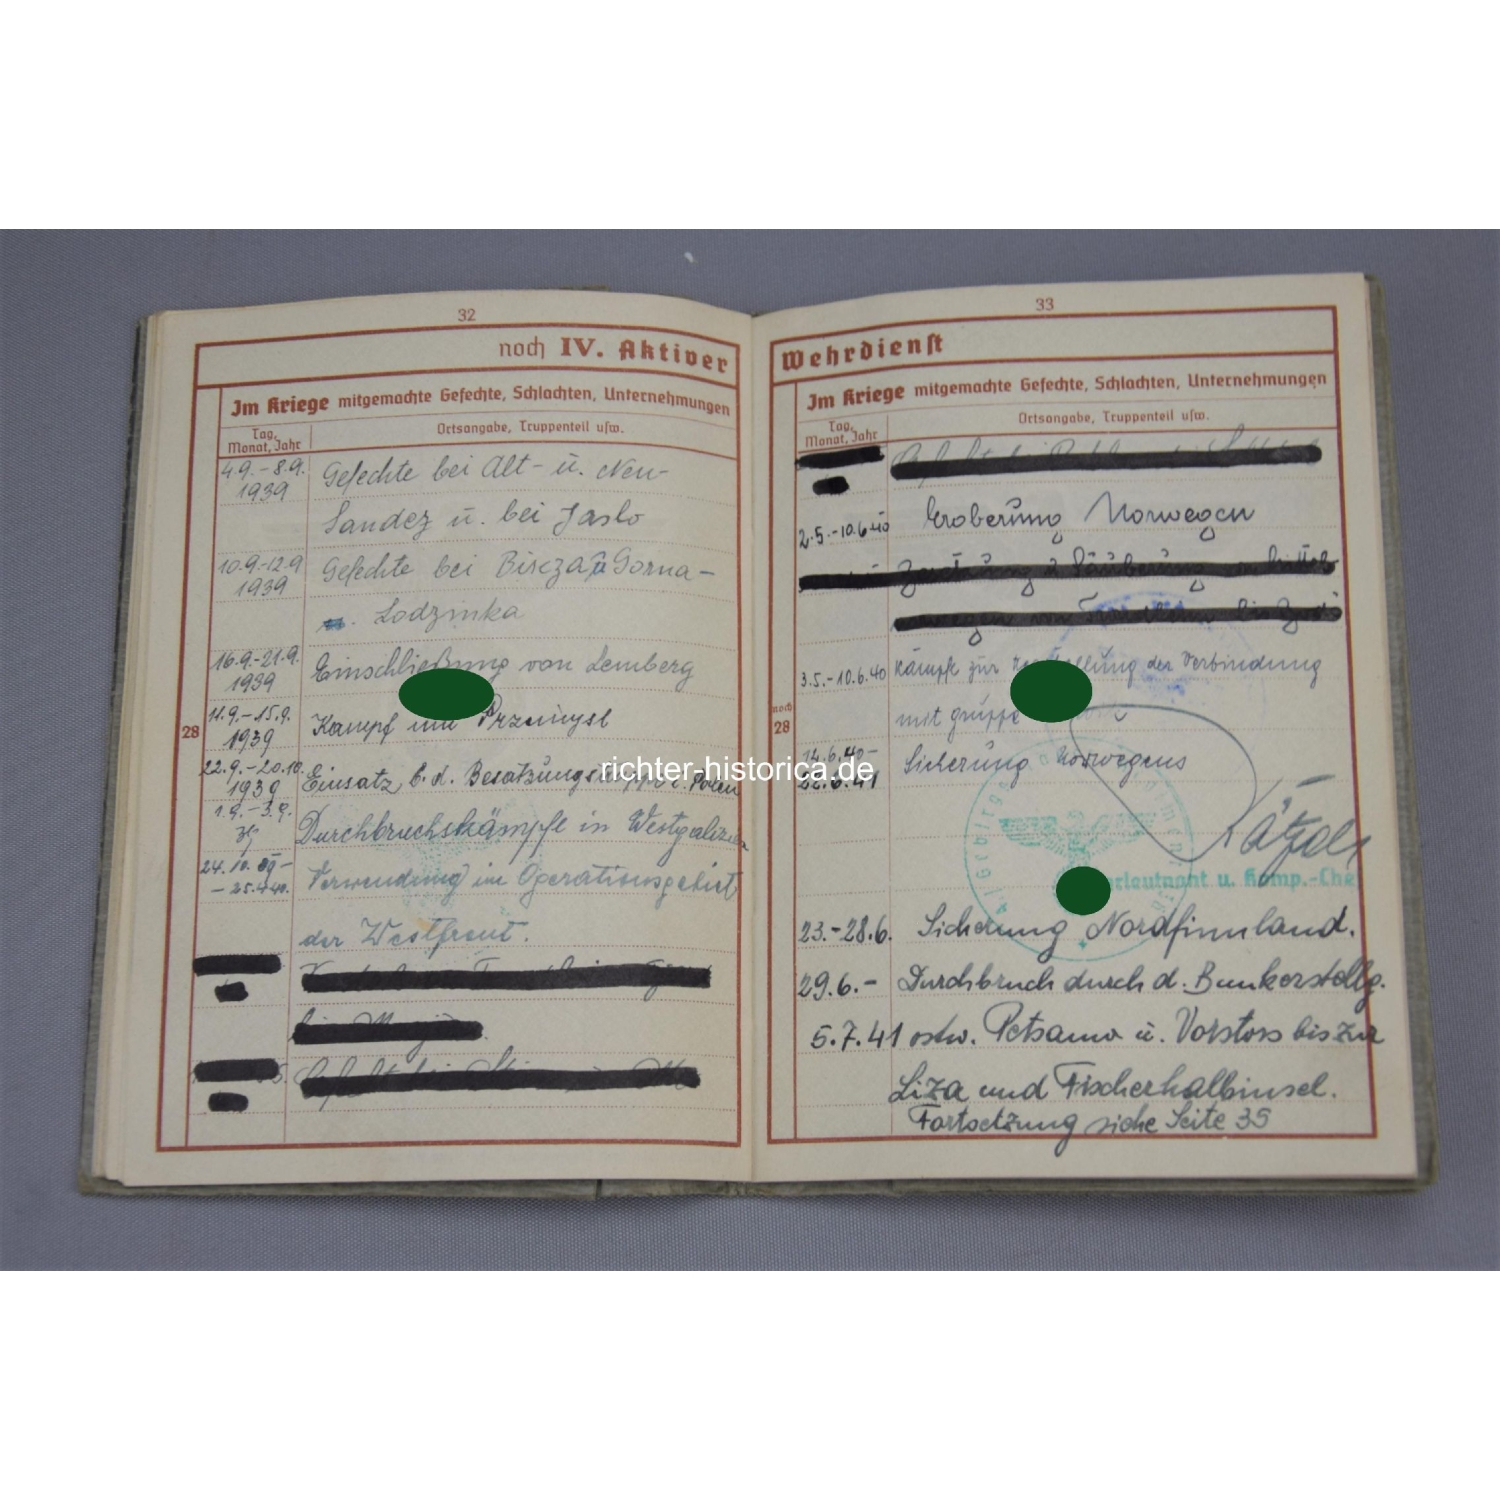 32
noch IV. Aktiver
Im Kriege mitgemachte Gefechte, Schlachten, Unternehmungen
Tag, Monat, Jahr
Ortsangabe, Truppenteil usw.
4.9.-8.9. 1939 Gefechte bei Alt- u. Neu-
Sandez u. bei Jaslo
10.9.-12.9 1939 Gefechte bei Bircza u Gorna-
Lodzinka
16.9.-21.9. 1939 Einschließung von Lemberg
28
11.9.-15.9. 1939 Kampf um Przemysl
22.9.-20.10. 1939 Einsatz b. d. Besatzungstruppe i. Polen
1.9.-3.9. 39 Durchbruchskämpfe in Westgalizien
24.10.39- Verwendung im Operationsgebiet
der Westfront.
33
Wehrdienst
Im Kriege mitgemachte Gefechte, Schlachten, Unternehmungen
Tag, Monat, Jahr
Ortsangabe, Truppenteil usw.
2.5.-10.6.40 Eroberung Norwegen
3.5.-10.6.40 Kämpfe zur Herstellung der Verbindung
noch 28
mit gruppe
14.6.40- Sicherung Norwegens
22.6.41
u. Komp.-Che
23.-28.6. Sicherung Nordfinnland.
29.6.- Durchbruch durch d. Bunkerstellg.
5.7.41 ostw. Petsamo u. Vorstoss bis zur
Liza und Fischerhalbinsel.
Fortsetzung siehe Seite 35
richter-historica.de